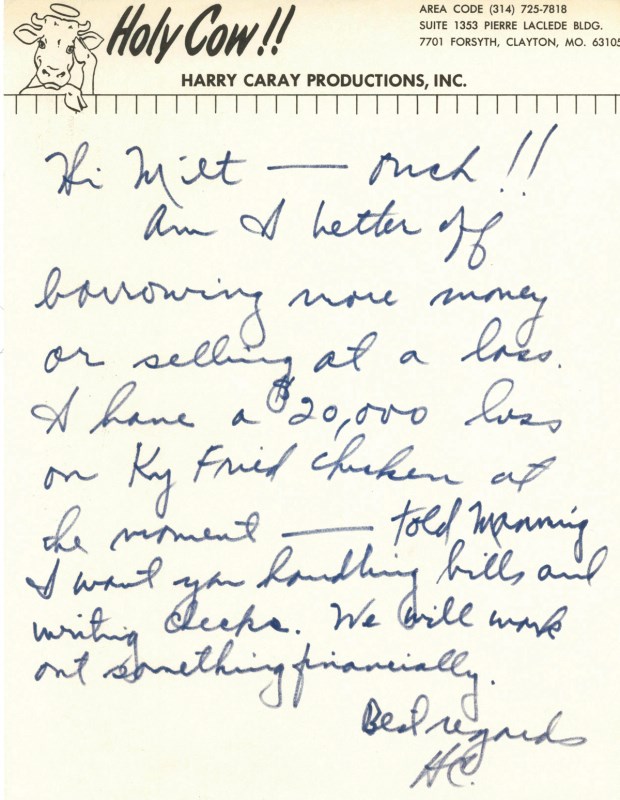 Holy Cow!!
AREA CODE (314) 725-7818
SUITE 1353 PIERRE LACLEDE BLDG.
7701 FORSYTH, CLAYTON, MO. 63105
HARRY CARAY PRODUCTIONS, INC.
Hi Milt — Ouch!!
Am I better off
borrowing more money
or selling at a loss.
I have a $20,000 loss
on Ky Fried Chicken at
the moment — told Manning
I want you handling bills and
writing checks. We will work
out something financially.
Best regards
HC.